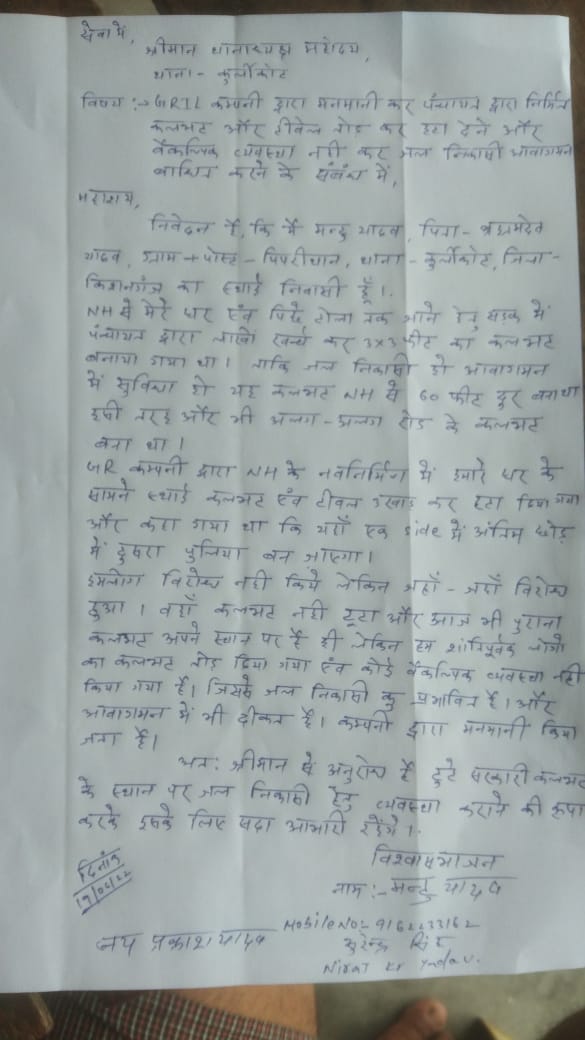 सेवा में,
श्रीमान थानाध्यक्ष महोदय,
थाना - कुर्लीकोट
विषय :→ GRIL कम्पनी द्वारा मनमानी कर पंचायत द्वारा निर्मित
कलभट और टीवेल तोड़ कर हटा देने और
वैकल्पिक व्यवस्था नही कर जल निकासी आवागमन
बाधित करने के संबंध में,
महाशय,
निवेदन है, कि मैं मन्टु यादव, पिता -
यादव, ग्राम + पोस्ट - पिपरीथान, थाना - कुर्लीकोट, जिला -
किशनगंज का स्थाई निवासी हूँ।
NH से मेरे घर एंव टोला तक आने हेतु सड़क में
पंचायत द्वारा लाखो खर्च कर 3x3 फीट का कलभट
बनाया गया था। ताकि जल निकासी हो आवागमन
में सुविधा हो यह कलभट NH से 60 फीट दुर बना था
इसी तरह और भी अलग - अलग रोड के कलभट
बना था।
GR कम्पनी द्वारा NH के नवनिर्मिण में हमारे घर के
सामने स्थाई कलभट एंव टीवल उखाड़ कर हटा दिया गया
और कहा गया था कि यहाँ एक side में अंतिम छोड़
में दुसरा पुलिया बन जाएगा।
हमलोग विरोध नही किये लेकिन जहाँ - जहाँ विरोध
हुआ। वहाँ कलभट नही टूटा और आज भी पुराना
कलभट अपने स्थान पर है ही लेकिन हम शांतिपूर्वक लोगो
का कलभट तोड़ दिया गया एंव कोई वैकल्पिक व्यवस्था नही
किया गया है। जिससे जल निकासी कु प्रभावित है। और
आवागमन में भी दीकत है। कम्पनी द्वारा मनमानी किया
जाता है।
अतः श्रीमान से अनुरोध है टुटे सरकारी कलभट
के स्थान पर जल निकासी हेतु व्यवस्था कराने की कृपा
करके इसके लिए सदा आभारी रहेंगे।
विश्वासभाजन
नाम :- मन्टु यादव
दिनांक
Mobile No:-
जय प्रकाश यादव
सुरेन्द्र सिंह
Nirat Kr Yadav.